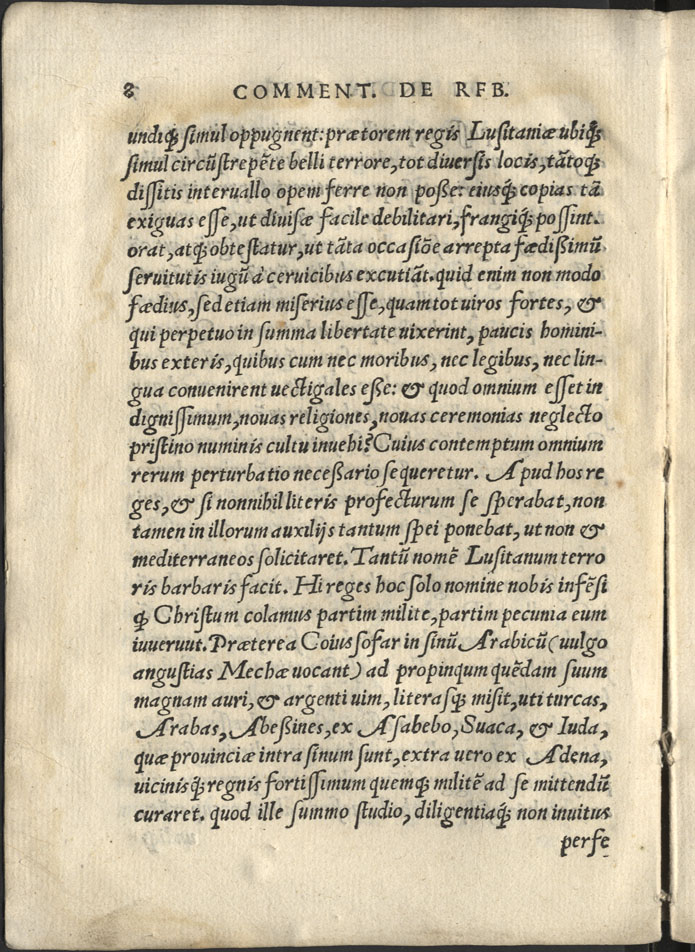 8 COMMENT. DE RFB.
undiq; simul oppugnent: prætorem regis Lusitaniæ ubiq;
simul circũstrepẽte belli terrore, tot diuersis locis, tãtoq;
dissitis interuallo opem ferre non poße: eiusq; copias tã
exiguas esse, ut diuisæ facile debilitari, frangiq; possint.
orat, atq; obtestatur, ut tãta occasiõe arrepta fædißimũ
seruitutis iugũ à ceruicibus excutiãt. quid enim non modo
fædius, sed etiam miserius esse, quam tot uiros fortes, &
qui perpetuo in summa libertate uixerint, paucis homini-
bus exteris, quibus cum nec moribus, nec legibus, nec lin-
gua conuenirent uectigales eße: & quod omnium esset in
dignissimum, nouas religiones, nouas ceremonias neglecto
pristino numinis cultu inuehi? Cuius contemptum omnium
rerum perturbatio neceßario sequeretur. Apud hos re
ges, & si nonnihil literis profecturum se sperabat, non
tamen in illorum auxilijs tantum spei ponebat, ut non &
mediterraneos solicitaret. Tantũ nomẽ Lusitanum terro
ris barbaris facit. Hi reges hoc solo nomine nobis infẽsi
q; Christum colamus partim milite, partim pecunia eum
iuueruut. Præterea Coiusofar in sinũ Arabicũ (uulgo
angustias Mechæ uocant) ad propinqum quẽdam suum
magnam auri, & argenti uim, literasq; misit, uti turcas,
Arabas, Abeßines, ex Asabebo, Suaca, & Iuda,
quæ prouinciæ intra sinum sunt, extra uero ex Adena,
uicinisq; regnis fortissimum quemq; militẽ ad se mittendũ
curaret. quod ille summo studio, diligentiaq; non inuitus
perfe